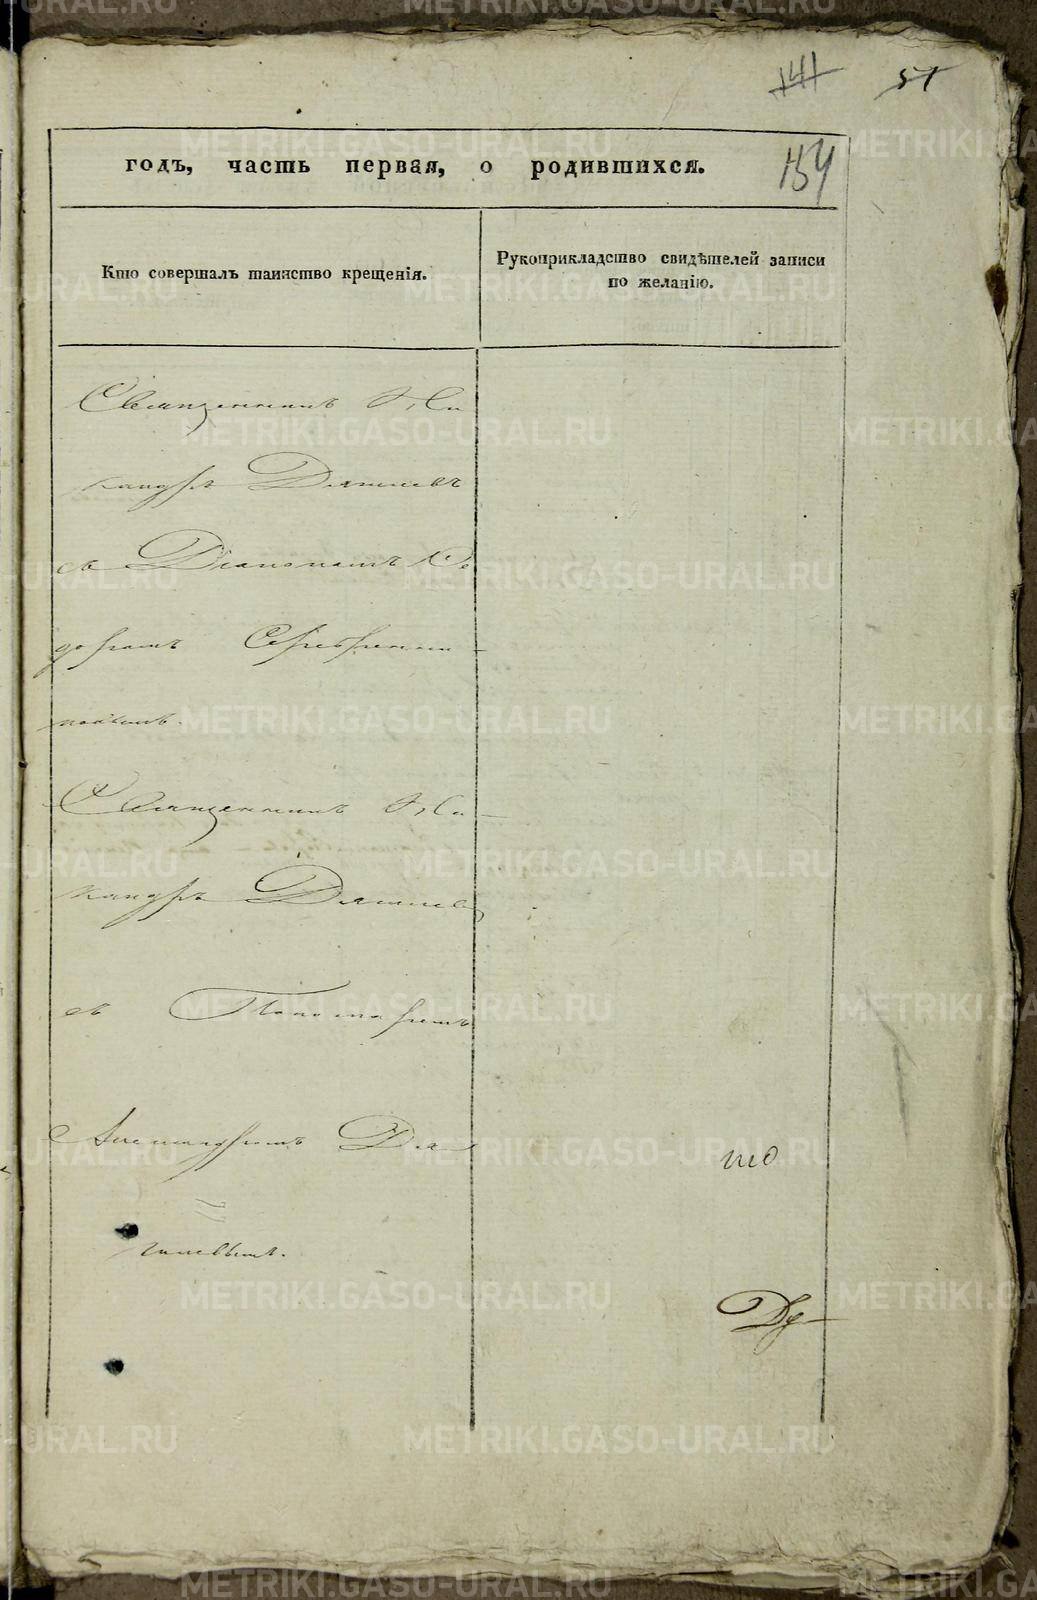 141 51
годъ, часть первая, о родившихся. 154
Кто совершалъ таинство крещенія.
Рукоприкладство свидѣтелей записи
по желанію.
Священникъ Ни
кандръ Дягилевъ
съ Діакономъ Ѳе
доромъ Серебрени-
ковымъ.
Священникъ Ни-
кандръ Дягилевъ
съ Пономаремъ
Александромъ Дя
гилевымъ.
METRIKI.GASO-URAL.RU